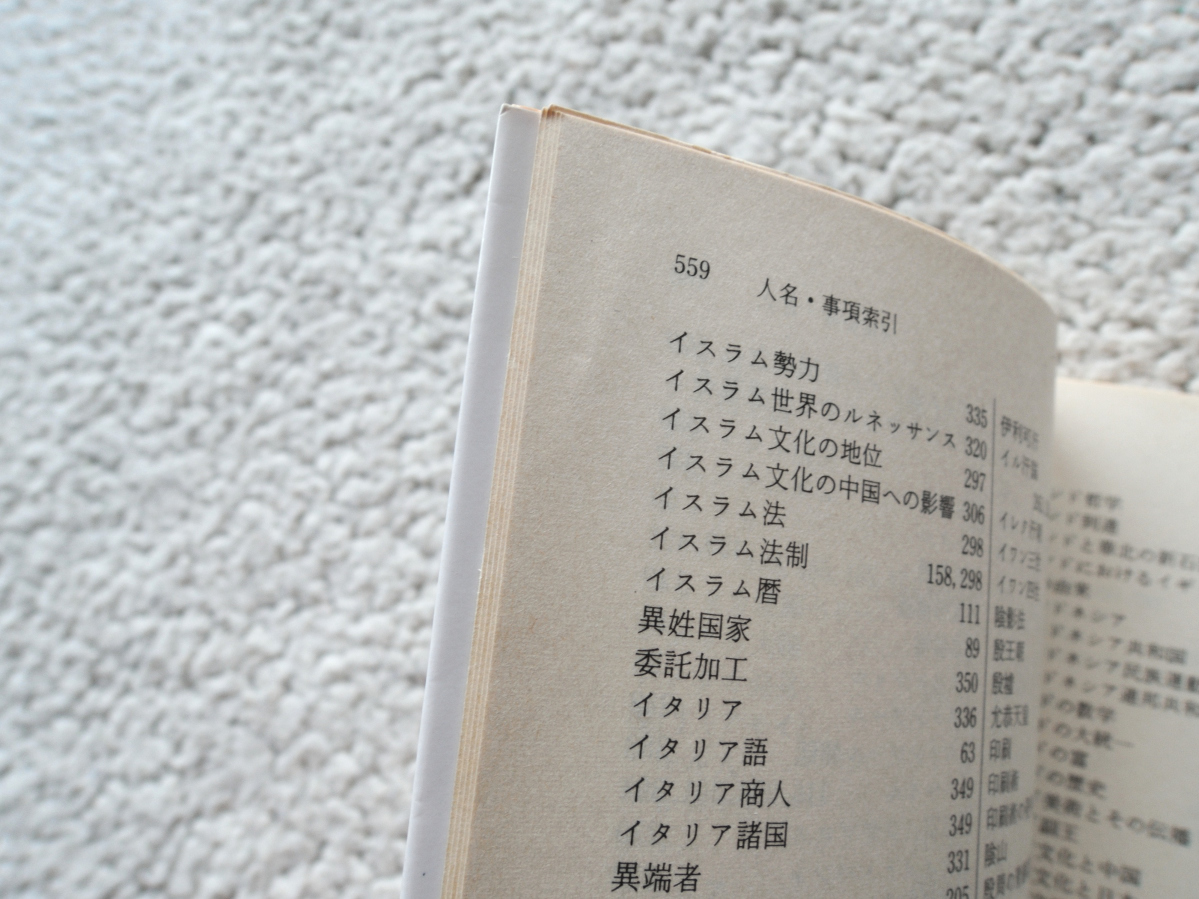 559 人名・事項索引
イスラム勢力 335
イスラム世界のルネッサンス 320
イスラム文化の地位 297
イスラム文化の中国への影響 306
イスラム法 298
イスラム法制 158,298
イスラム暦 111
異姓国家 89
委託加工 350
イタリア 336
イタリア語 63
イタリア商人 349
イタリア諸国 349
異端者 331
伊利可汗
イル汗国
イワン三世
イワン四世
陰影法
殷王朝
殷墟
允恭天皇
印刷
印刷術
陰山
ド哲学
ド到達
ドと華北の新石
ドにおけるイギ
ドネシア
ドネシア共和国
ドネシア民族運動
ドネシア連邦共和
ドの数学
ドの大統一
の富
の歴史
美術とその伝播
副王
文化と中国
文化と日